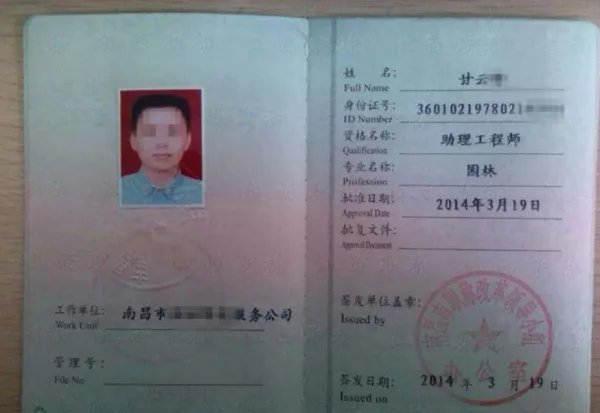 工作单位:
Work Unit
南昌市 服务公司
管理号:
File No
姓 名:
Full Name
甘云
身份证号:
ID Number
3601021978021
资格名称:
Qualification
助理工程师
专业名称:
Profession
园林
批准日期:
Approval Date
2014年3月19日
批复文件:
Approval Document
签发单位盖章:
Issued by
办公室
签发日期:
Issued on
2014 年 3 月 19 日